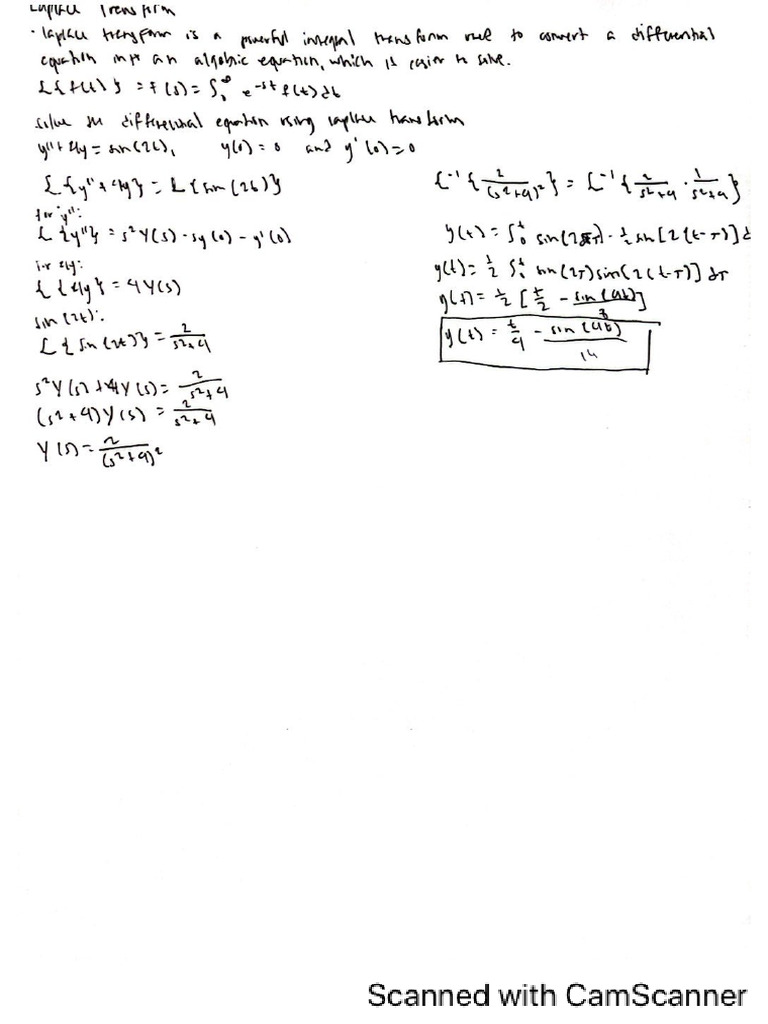 Laplace Transform
· laplace transform is a powerful integral transform used to convert a differential
equation into an algebric equation, which is easier to solve.
L{f(t)} = F(s) = ∫₀^∞ e^-st f(t) dt
solve the differential equation using laplace transform
y'' + 4y = sin(2t), y(0) = 0 and y'(0) = 0
L{y'' + 4y} = L{sin(2t)}
for y'':
L{y''} = s²Y(s) - sy(0) - y'(0)
for 4y:
L{4y} = 4Y(s)
sin(2t):
L{sin(2t)} = 2/(s²+4)
s²Y(s) + 4Y(s) = 2/(s²+4)
(s²+4)Y(s) = 2/(s²+4)
Y(s) = 2/(s²+4)²
L⁻¹{2/(s²+4)²} = L⁻¹{2/(s²+4) · 1/(s²+4)}
y(t) = ∫₀^t sin(2τ) · 1/2 sin[2(t-τ)] d
y(t) = 1/2 ∫₀^t sin(2τ) sin(2(t-τ)] dτ
y(t) = 1/2 [t/2 - sin(4t)/8]
y(t) = t/4 - sin(4t)/16
Scanned with CamScanner